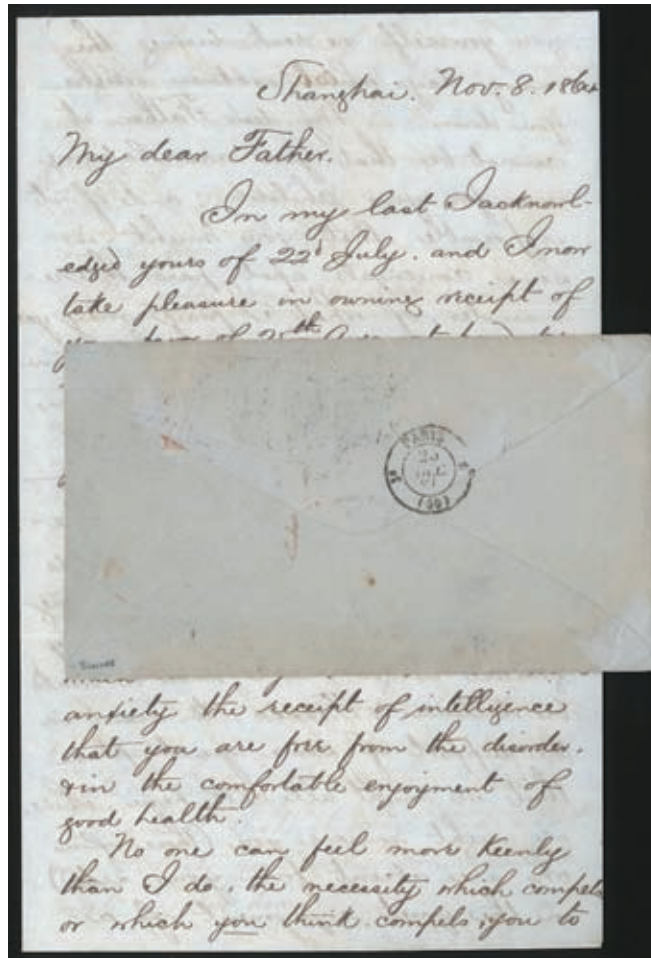 Shanghai. Nov. 8. 186
My dear Father.
In my last I acknowl-
edged yours of 22d July. and I now
take pleasure in owning receipt of
of
PARIS
(60)
anxiety the receipt of intelligence
that you are free from the disorder.
& in the comfortable enjoyment of
good health.
No one can feel more keenly
than I do, the necessity which compels
or which you think compels, you to